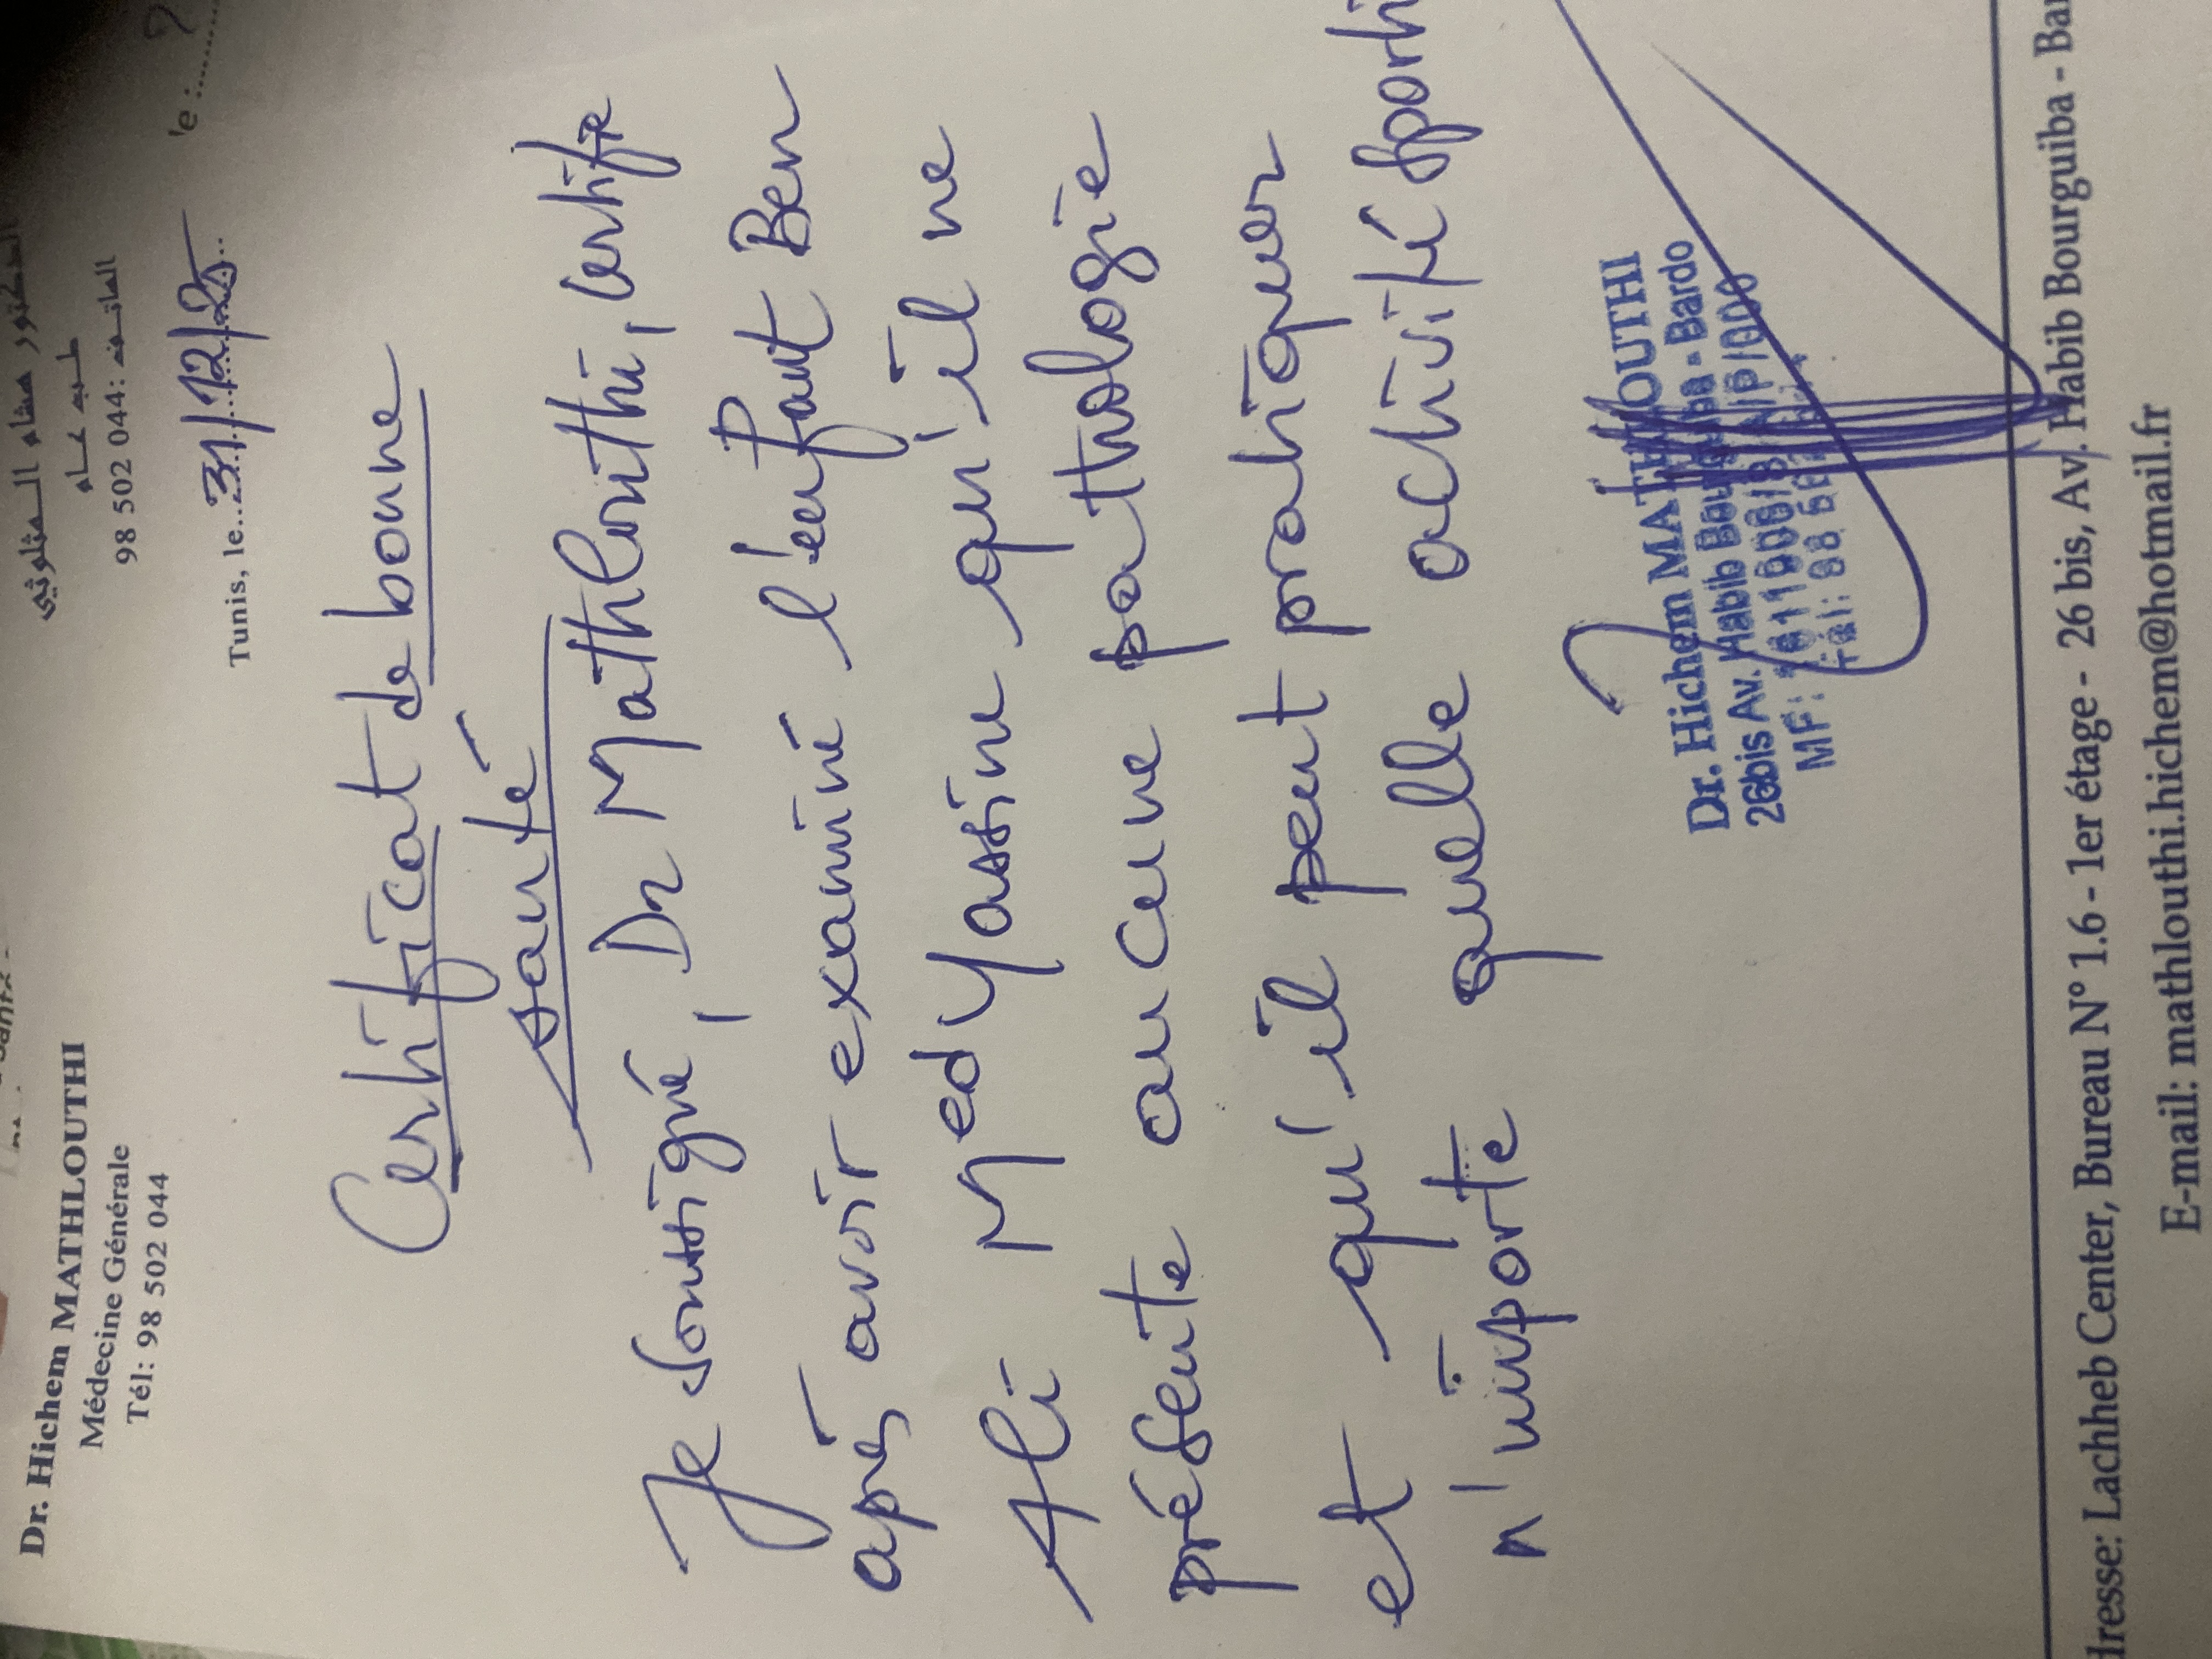 Dr. Hichem MATHLOUTHI
Médecine Générale
Tél: 98 502 044
الدكتور هشام المثلوثي
طب عام
الهاتف: 98 502 044
Tunis, le..31/12/25..
Certificat de bonne
santé
Je soussigné, Dr Mathlouthi, certifie
après avoir examiné l'enfant Ben
Ali Med Yassine qu'il ne
présente aucune pathologie
et qu'il peut pratiquer
n'importe quelle activité sporti
Dr. Hichem MATHLOUTHI
26bis Av. Habib Bourguiba - Bardo
MF:
Tél: 98 50
dresse: Lachheb Center, Bureau N° 1.6 - 1er étage - 26 bis, Av. Habib Bourguiba - Bar
E-mail: mathlouthi.hichem@hotmail.fr